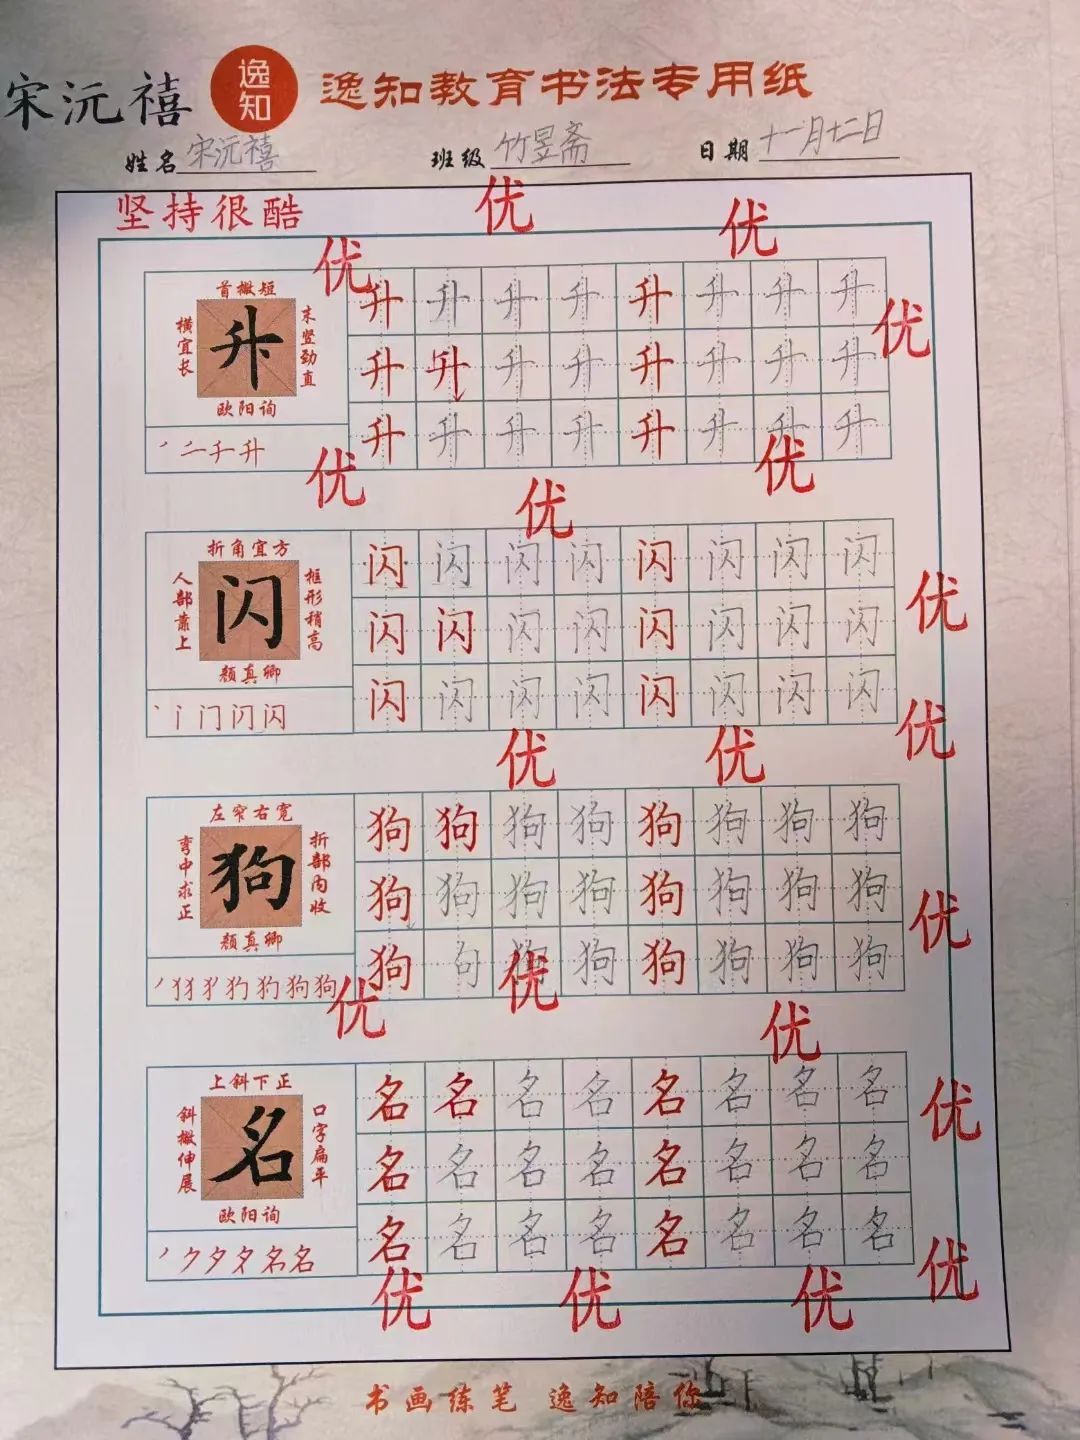 宋沅禧 逸知 逸知教育书法专用纸
姓名 宋沅禧 班级 竹昱斋 日期 十一月十二日
坚持很酷 优 优
优
首撇短
横宜长 升 末竖劲直
欧阳询
丿 二 千 升
升 升 升 升 升 升 升 升
升 升 升 升 升 升 升 升 优
升 升 升 升 升 升 升 升
优 优 优
折角宜方
人部靠上 闪 框形稍高
颜真卿
丶 丨 门 闪 闪
闪 闪 闪 闪 闪 闪 闪 闪
闪 闪 闪 闪 闪 闪 闪 闪 优
闪 闪 闪 闪 闪 闪 闪 闪
优 优 优
左窄右宽
弯中求正 狗 折部内收
颜真卿
狗 狗
狗 狗 狗 狗 狗 狗 狗 狗
狗 狗 狗 狗 狗 狗 狗 狗 优
狗 句 狗 狗 狗 狗 狗 狗
优 优 优
上斜下正
斜撇伸展 名 口字扁平
欧阳询
丿 ク 夕 夕 名 名
名 名 名 名 名 名 名 名 优
名 名 名 名 名 名 名 名
名 名 名 名 名 名 名 名
优 优 优 优
书画练笔 逸知陪你